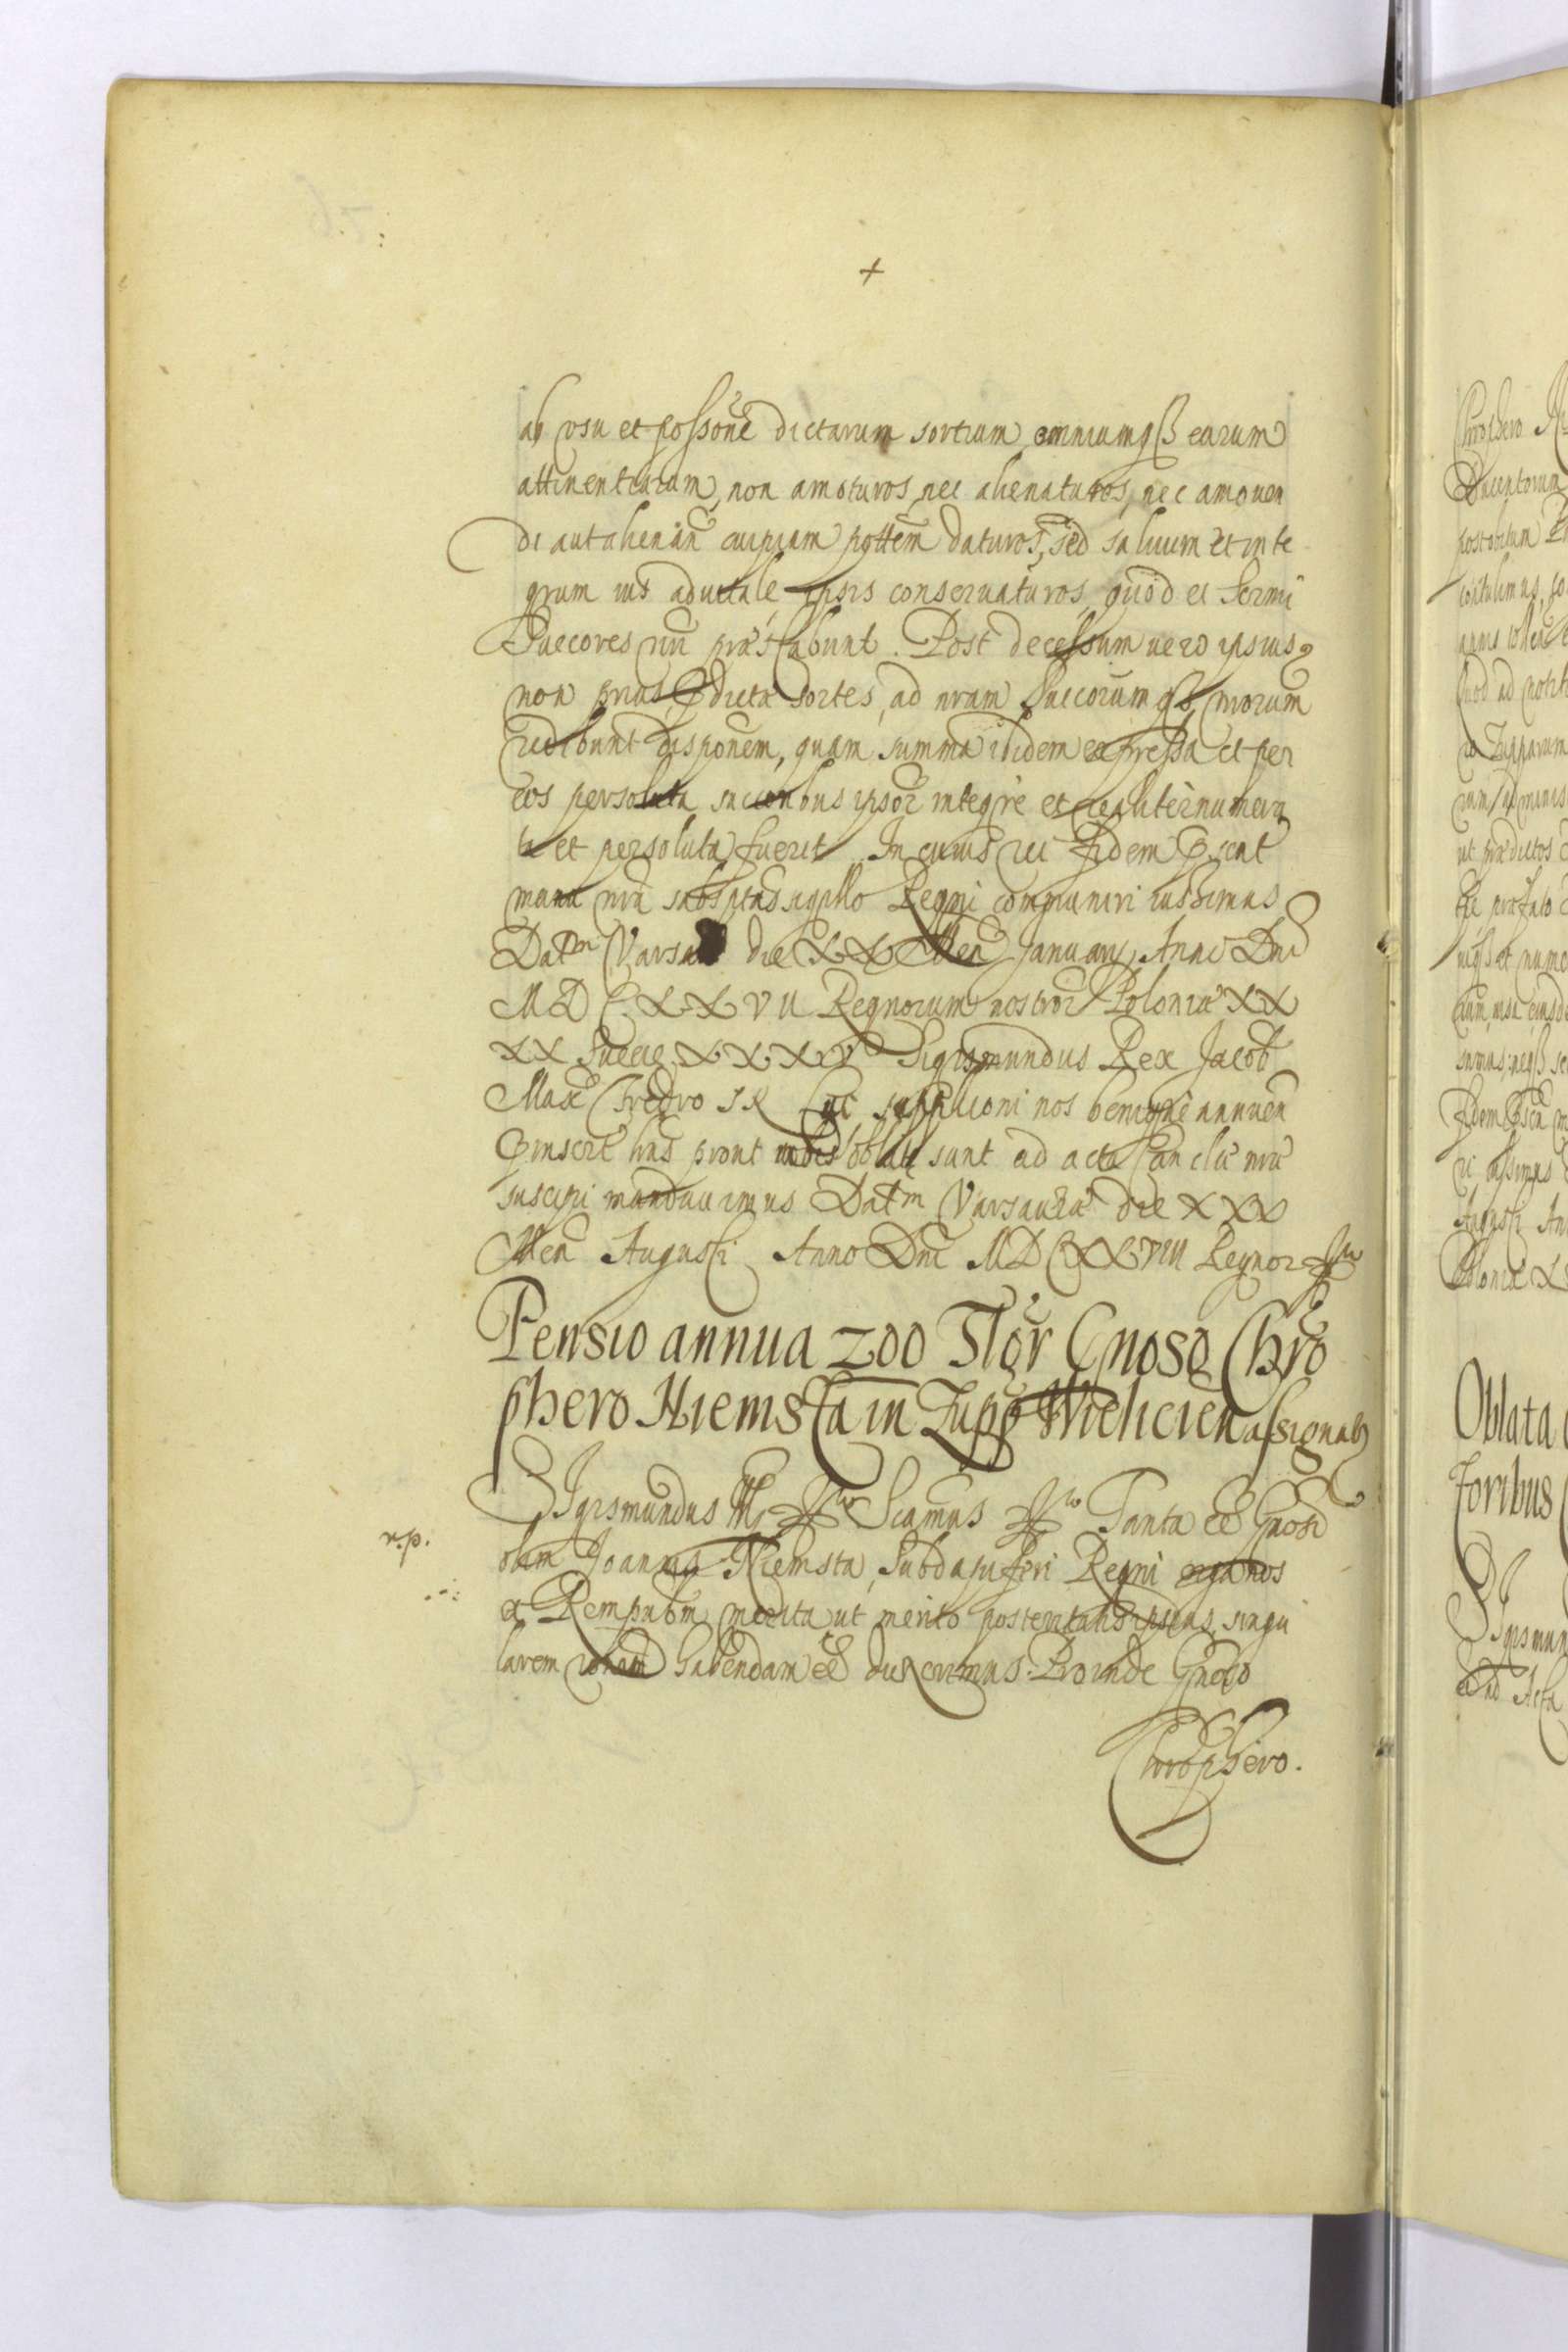 +
ab vsu et possone dictarum sortium omniumqʒ earum
attinentiarum, non amoturos, nec alienaturos, nec amouen
di aut alienan cuipiam pottem daturos, sed saluum et inte
grum ius aduitale ipsis conseruaturos, quod et Sermi
Succores nri præstabunt. Post decessum uero ipsius
non prius dicta sortes, ad nram Succorumqʒ nrorum
redibunt disponem, quam summa ibidem expressa et per
eos persoluta succoribus ipsor integre et realiter numera
ta et persoluta fuerit. In cuius rei fidem pscnt
manu nra subsptas sigillo Regni communiri iussimus
Datm Varsa die XX Men January Anno Dni
MDCXXVII Regnorum nostror Poloniæ XX
XX Sueciæ XXXIV Sigismundus Rex Jacob
Max Fredro SR Cui supplicioni nos benigne annuen
pinsert lras prout nobis oblatæ sunt ad acta Cancellæ nræ
suscipi mandauimus Datm Varsauiæ die XXX
Men Augusti Anno Dni MDCXXVIII Regnor
Pensio annua 200 Flor Gnoso Chro
phero Niemsta in Zupp Wielicien assignatʳ
Sigismundus III Scamus Tanta ee Gnosi
r.p.
olim Joannis Niemsta, Subdapiferi Regni erga nos
et Rempubm merita ut merito posteritatis ipsius, singu
larem ronem habendam ee duxerimus. Proinde Gnoso
Chrophero.